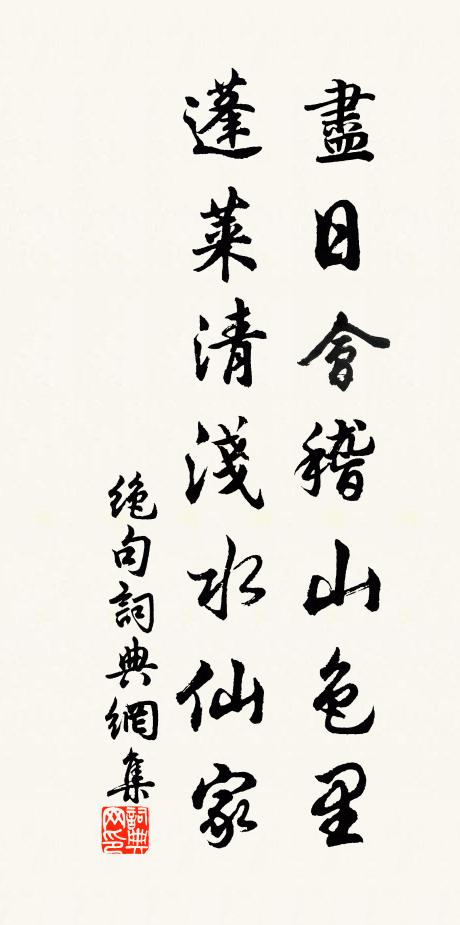 盡日會稽山色里
蓬萊清淺水仙家
絕句詞典網集
詞典网印